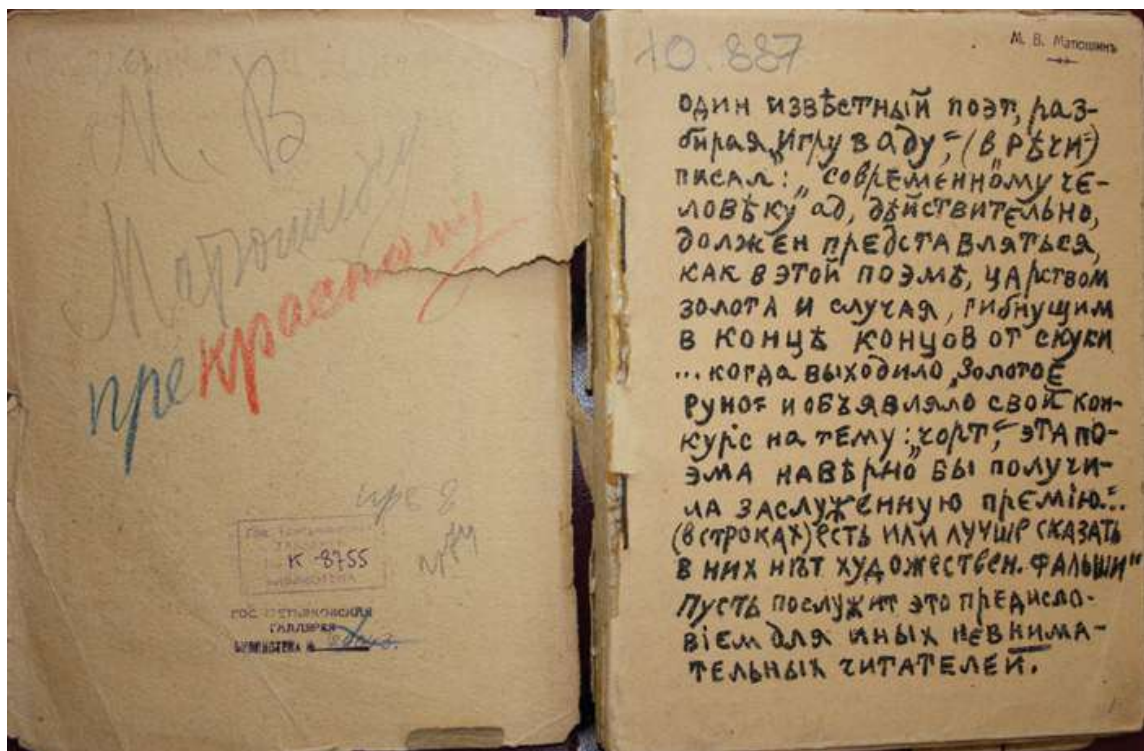 М. В
Матюшину
прекрасному
К-8755
ГОС. ТРЕТЬЯКОВСКАЯ
ГАЛЛЕРЕЯ
БИБЛИОТЕКА №
Ю. 887
М. В. Матюшинъ
один извѣстный поэт, раз-
бирая „Игру в аду“, (в „Рѣчи“)
писал: „современному че-
ловѣку ад, дѣйствительно,
должен представляться,
как в этой поэмѣ, царством
золота и случая, гибнущим
в концѣ концов от скуки
... когда выходило „Золотое
Руно“ и объявляло свой кон-
курс на тему: „чорт“, эта по-
эма навѣрно бы получи-
ла заслуженную премію...“
(в строках) есть или лучше сказать
в них нѣт художествен. фальши“
Пусть послужит это предисло-
віем для иных невнима-
тельных читателей.